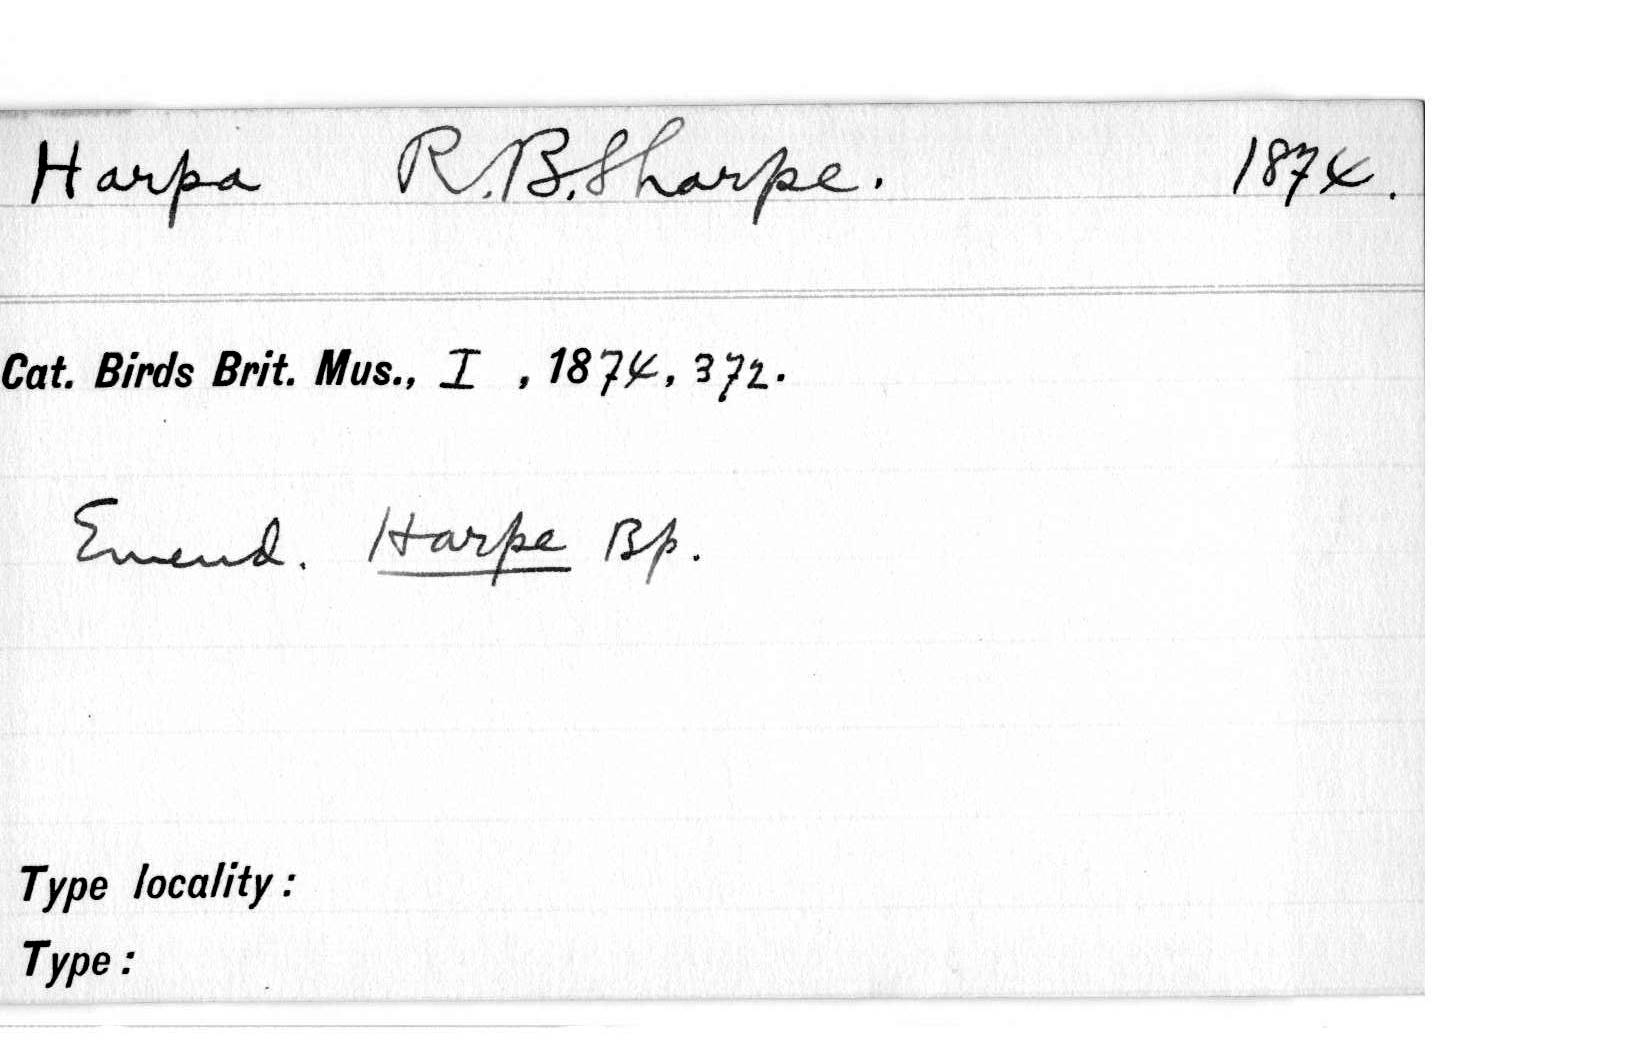 Harpa R.B.Sharpe. 1874.
Cat. Birds Brit. Mus., I , 1874, 372.
Emend. Harpe Bp.
Type locality:
Type: